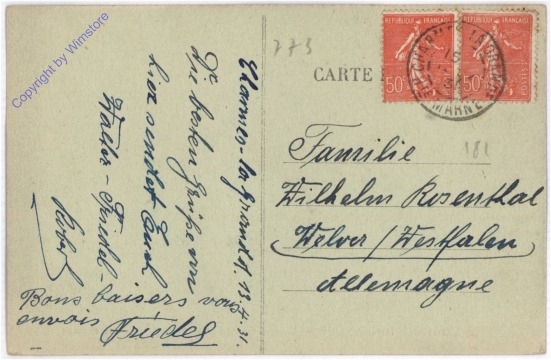 Copyright by Wimstore
773
CARTE
REPUBLIQUE FRANÇAISE
50c
REPUBLIQUE FRANÇAISE
50c
MARNE
181
Charmes-la-Grande d. 13.4.31.
Die besten Grüße von
hier sendet Euch
Walter - Friedel -
Robert
Bons baisers vous
envois Friedel
Familie
Wilhelm Rosenthal
Welver / Westfalen
Allemagne